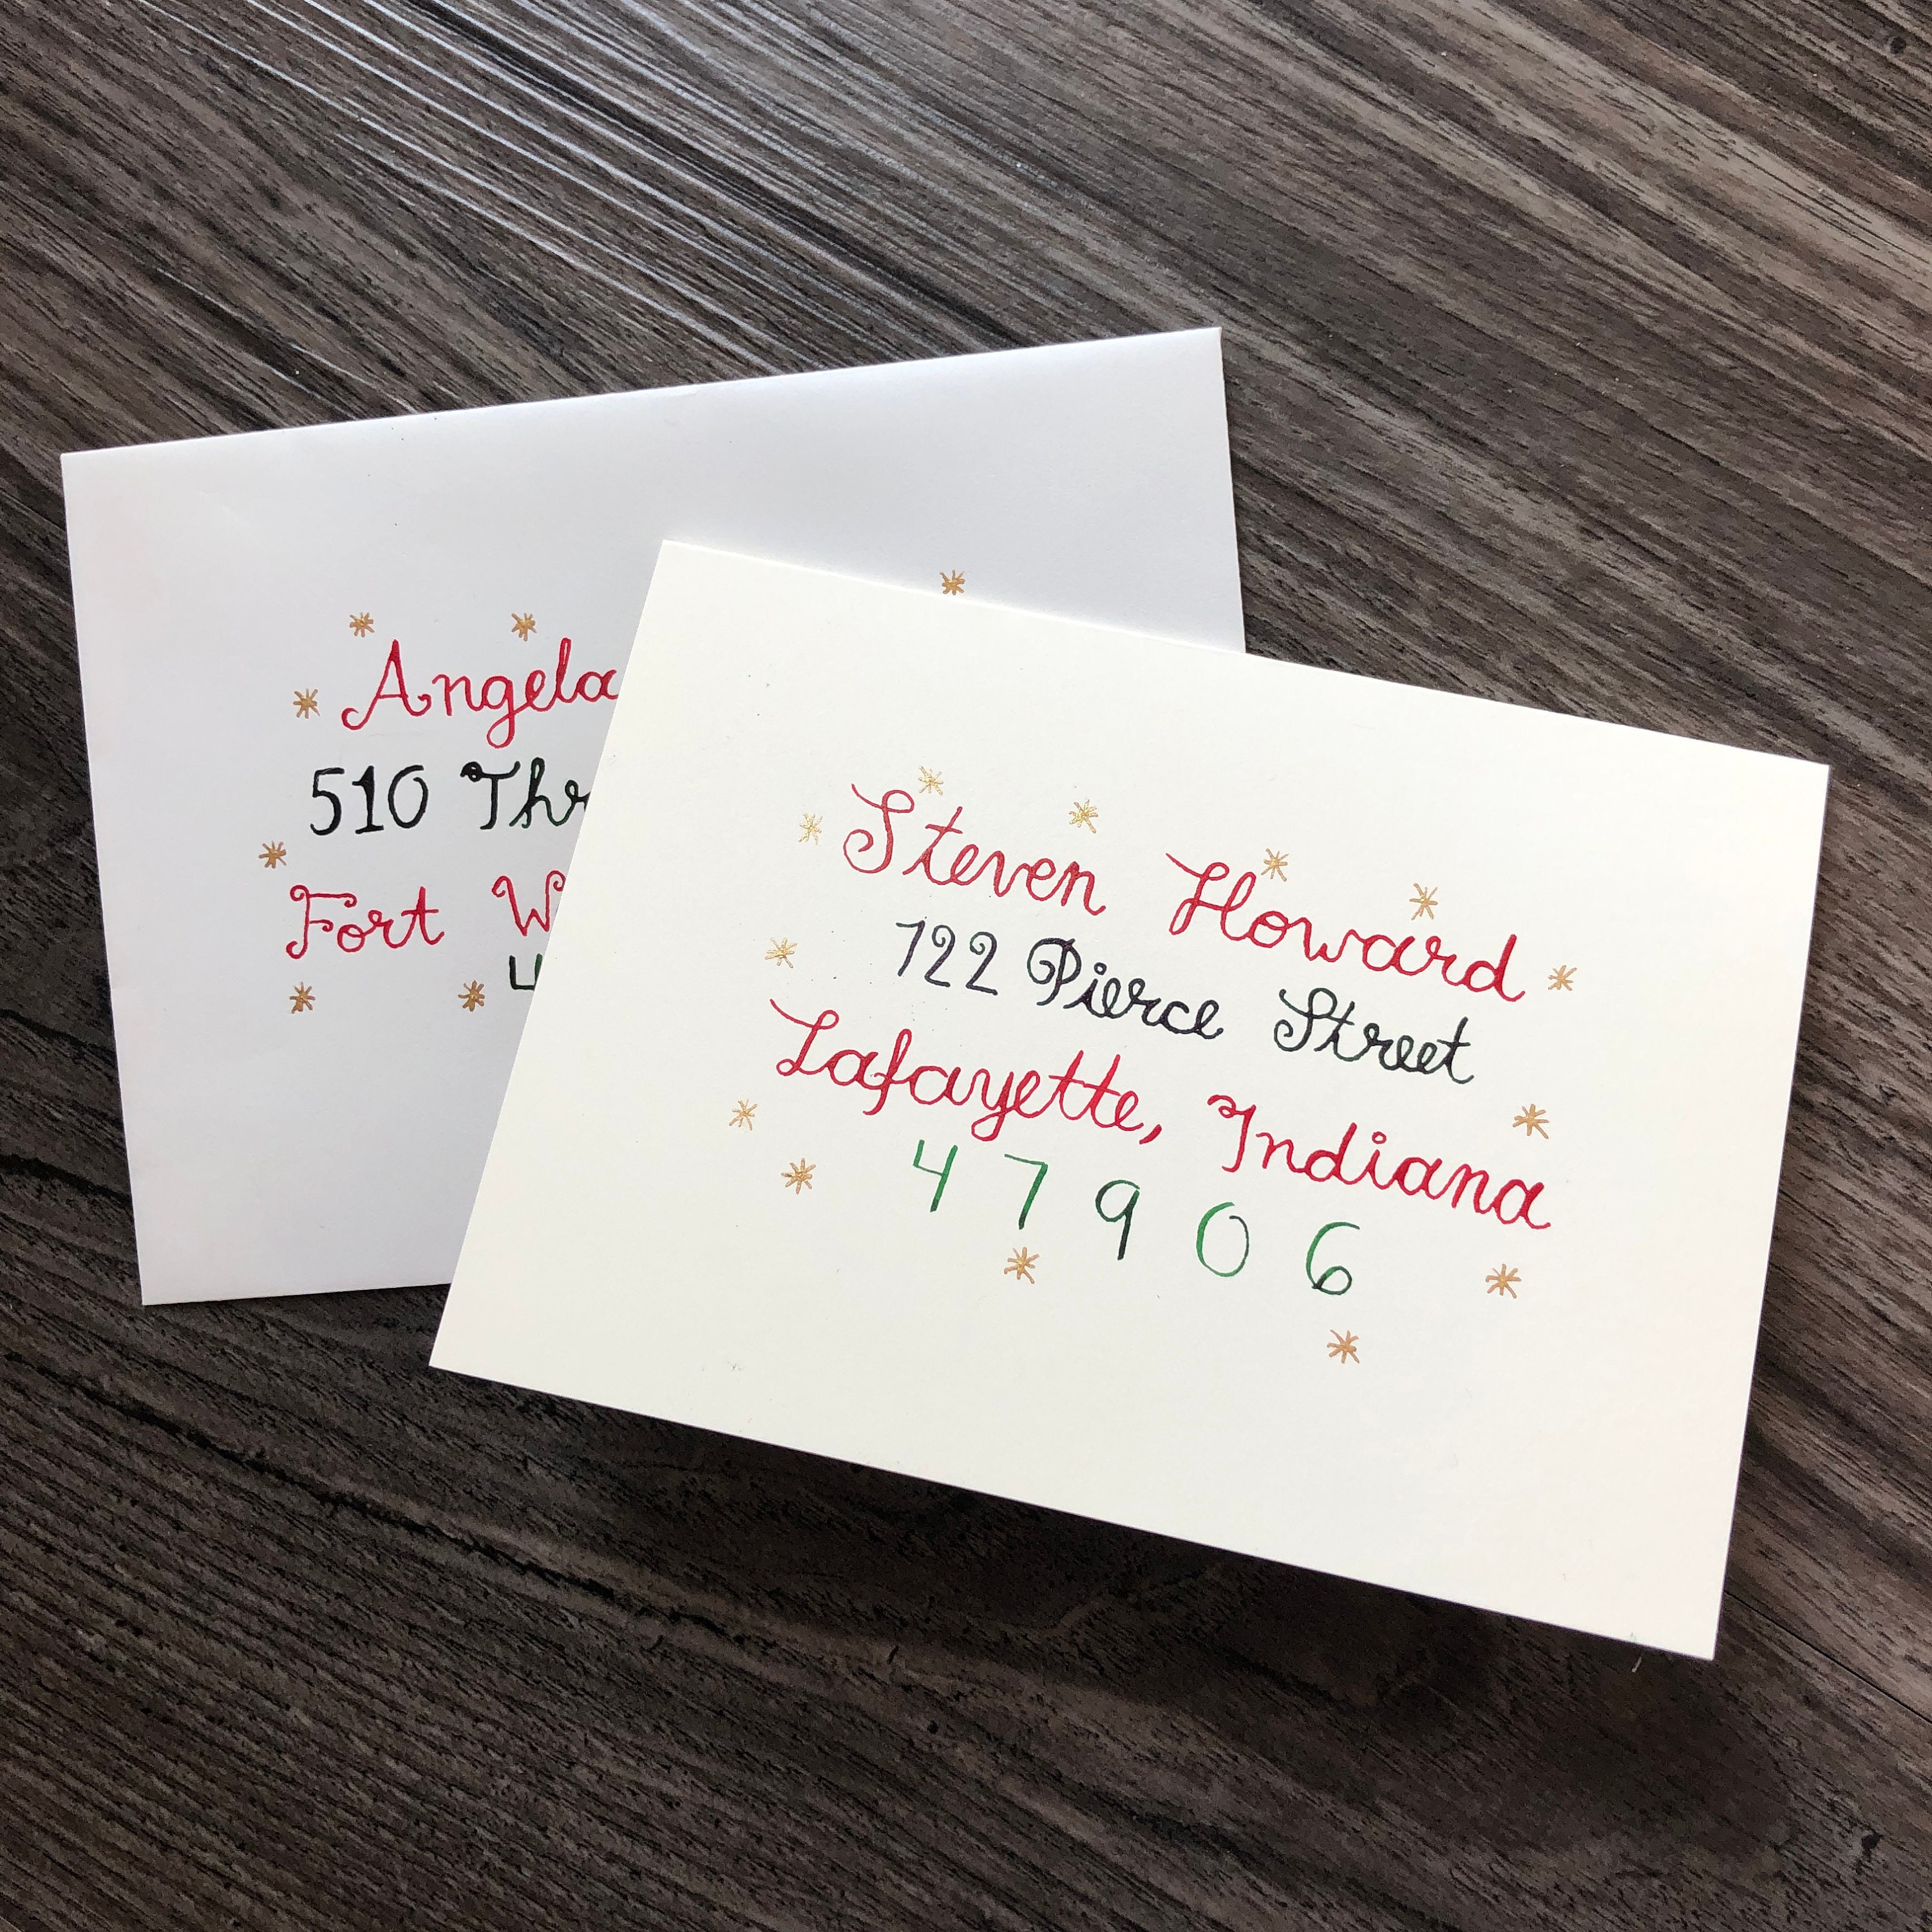 Angela
510
Fort
Steven Howard
722 Pierce Street
Lafayette, Indiana
47906